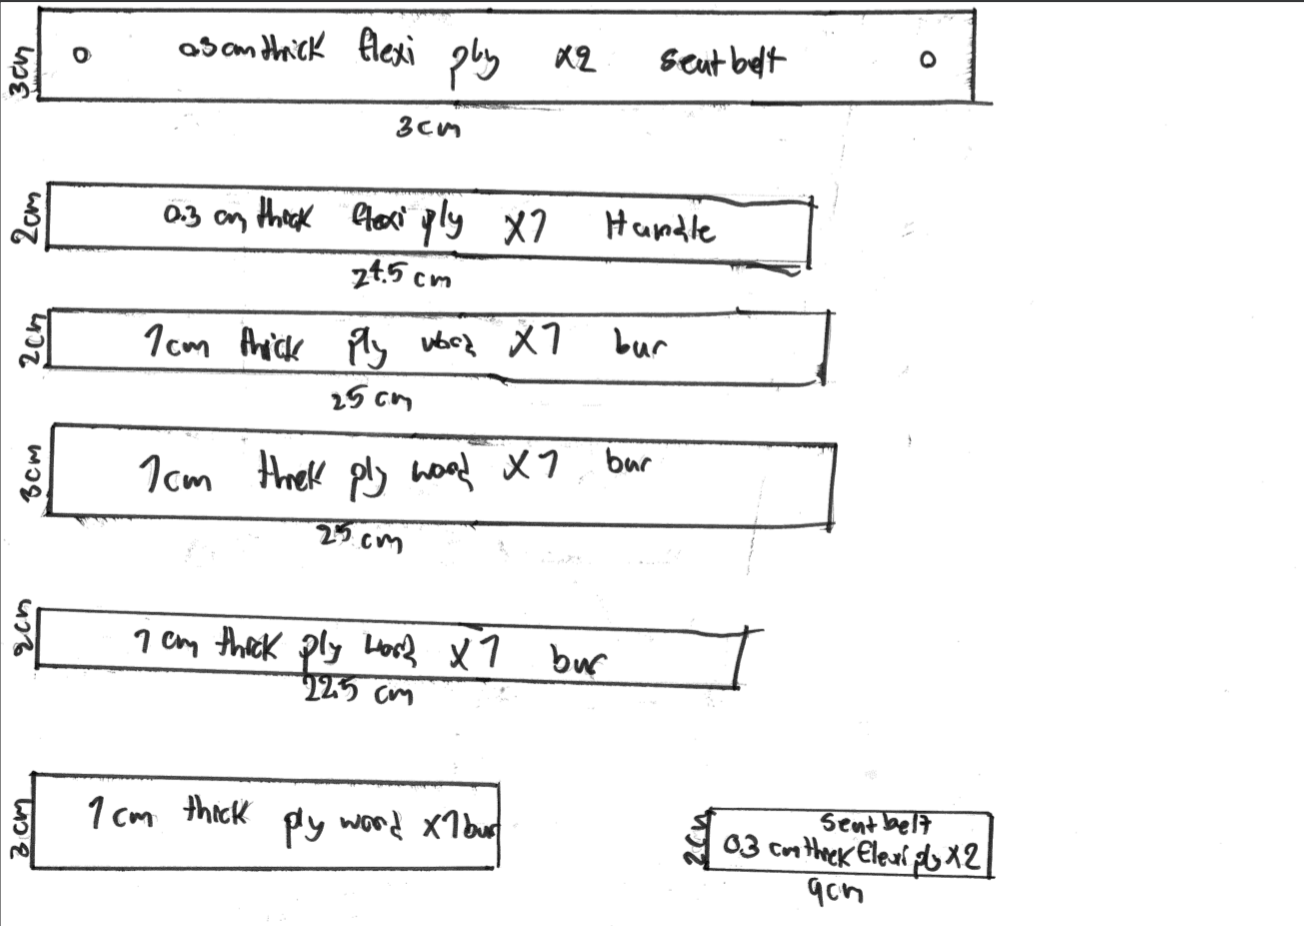 3cm
0.3 cm thick flexi ply x2 seat belt
3cm
2cm
0.3 cm thick flexi ply x1 Handle
24.5 cm
2cm
1cm thick ply wood x1 bar
25 cm
3cm
1cm thick ply wood x1 bar
25 cm
2cm
1 cm thick ply wood x1 bar
22.5 cm
3cm
1 cm thick ply wood x1 bar
2cm
seat belt
0.3 cm thick flexi ply x2
9cm